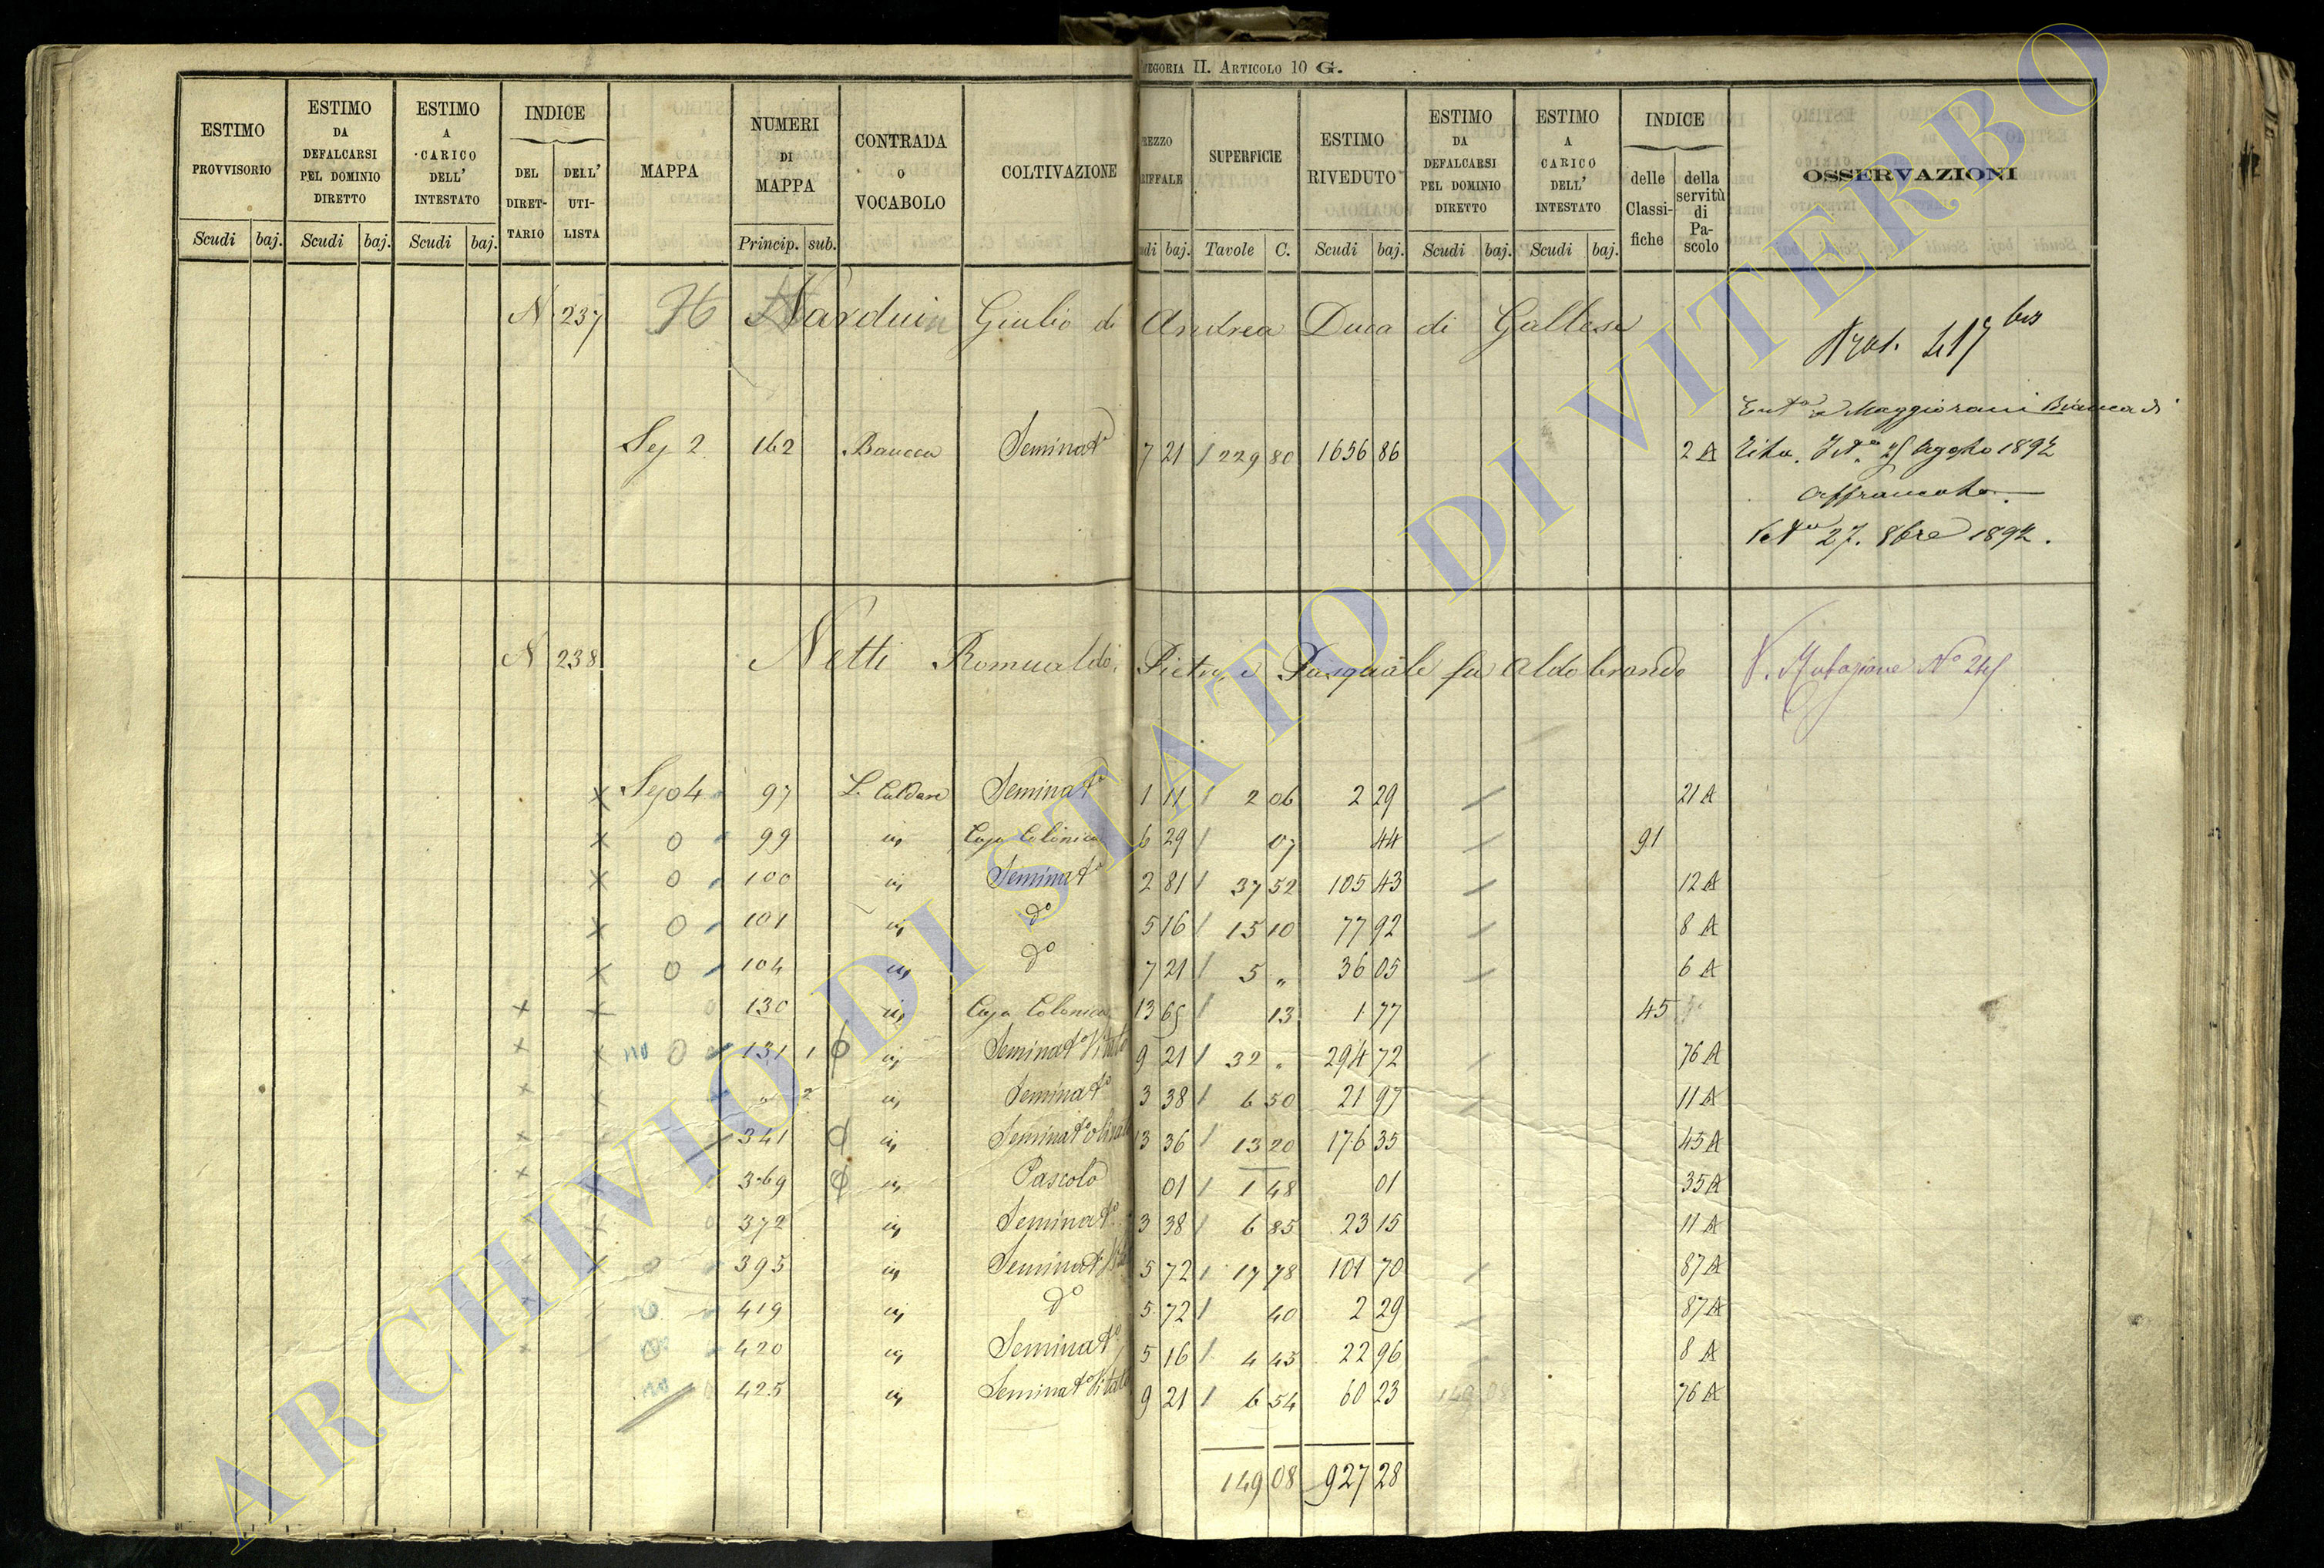 CATEGORIA II. ARTICOLO 10 G.
ESTIMO PROVVISORIO Scudi baj.
ESTIMO DA DEFALCARSI PEL DOMINIO DIRETTO Scudi baj.
ESTIMO A CARICO DELL' INTESTATO Scudi baj.
INDICE DEL DIRETTARIO DELL' UTILISTA
MAPPA
NUMERI DI MAPPA Princip. sub.
CONTRADA O VOCABOLO
COLTIVAZIONE
PREZZO TARIFFALE Scudi baj.
SUPERFICIE Tavole C.
ESTIMO RIVEDUTO Scudi baj.
ESTIMO DA DEFALCARSI PEL DOMINIO DIRETTO Scudi baj.
ESTIMO A CARICO DELL' INTESTATO Scudi baj.
INDICE delle Classifiche della servitù di Pascolo
OSSERVAZIONI
N 237 Harduin Giulio di Andrea Duca di Gallese
bis
Ent.a Maggiorani Bianca di
Sez 2 162 Baucca Seminato 7 21 / 229 80 1656 86 2 A Tito. Agosto 1892
Affrancato
27. 8bre 1892.
N 238 Netti Romualdo, Pietro, e Pasquale fu Aldobrando V. Mutazione No 245
x Sezo 4 97 L. Caldare Seminato 1 11 / 2 06 2 29 21 A
x O 99 in Casa Colonica 6 29 / 07 44 91
x O 100 in Seminato 2 81 / 37 52 105 43 12 A
x O 101 in do 5 16 / 15 10 77 92 8 A
x O 104 in do 7 21 / 5 " 36 05 6 A
x x 130 in Casa Colonica 13 65 / 13 1 77 45
x x no O 131 1 in Seminato Vitato 9 21 / 32 " 294 72 76 A
x x " 2 in Seminato 3 38 / 6 50 21 97 11 A
x 341 in Seminato Olivato 13 36 / 13 20 176 35 45 A
x x 369 in Pascolo 01 / 1 48 01 35 A
x 372 in Seminato 3 38 / 6 85 23 15 11 A
395 in Seminato Vitato 5 72 / 17 78 101 70 87 A
419 in do 5 72 / 40 2 29 87 A
420 in Seminato 5 16 / 4 45 22 96 8 A
no 425 in Seminato Vitato 9 21 / 6 54 60 23 149 08 76 A
149 08 927 28
ARCHIVIO DI STATO DI VITERBO